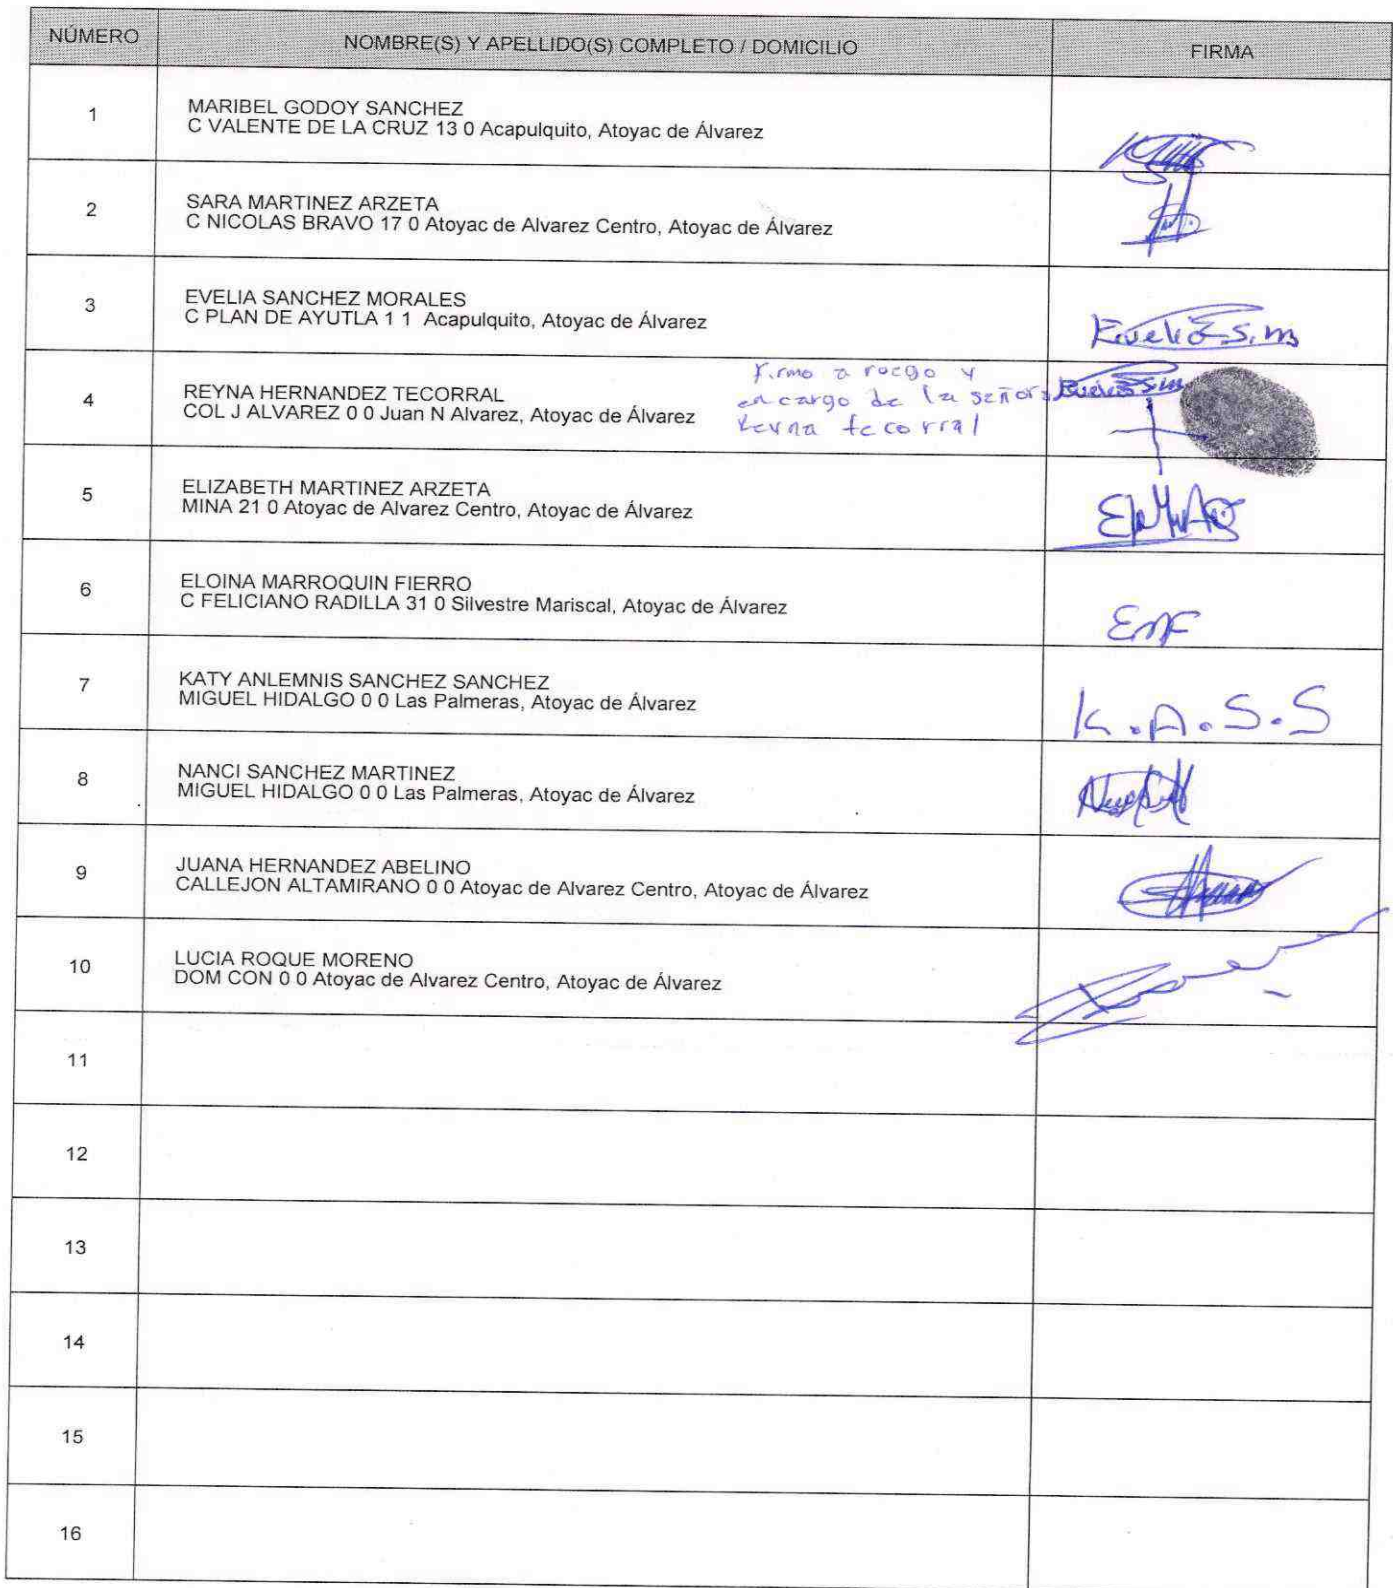 NÚMERO NOMBRE(S) Y APELLIDO(S) COMPLETO / DOMICILIO FIRMA
1 MARIBEL GODOY SANCHEZ
C VALENTE DE LA CRUZ 13 0 Acapulquito, Atoyac de Álvarez
2 SARA MARTINEZ ARZETA
C NICOLAS BRAVO 17 0 Atoyac de Alvarez Centro, Atoyac de Álvarez
3 EVELIA SANCHEZ MORALES
C PLAN DE AYUTLA 1 1 Acapulquito, Atoyac de Álvarez
Evelia S.m
4 REYNA HERNANDEZ TECORRAL
COL J ALVAREZ 0 0 Juan N Alvarez, Atoyac de Álvarez
Firmo a ruego y
encargo de la señora
Reyna tecorral
5 ELIZABETH MARTINEZ ARZETA
MINA 21 0 Atoyac de Alvarez Centro, Atoyac de Álvarez
6 ELOINA MARROQUIN FIERRO
C FELICIANO RADILLA 31 0 Silvestre Mariscal, Atoyac de Álvarez
EMF
7 KATY ANLEMNIS SANCHEZ SANCHEZ
MIGUEL HIDALGO 0 0 Las Palmeras, Atoyac de Álvarez
K.A.S.S
8 NANCI SANCHEZ MARTINEZ
MIGUEL HIDALGO 0 0 Las Palmeras, Atoyac de Álvarez
9 JUANA HERNANDEZ ABELINO
CALLEJON ALTAMIRANO 0 0 Atoyac de Alvarez Centro, Atoyac de Álvarez
10 LUCIA ROQUE MORENO
DOM CON 0 0 Atoyac de Alvarez Centro, Atoyac de Álvarez
11
12
13
14
15
16